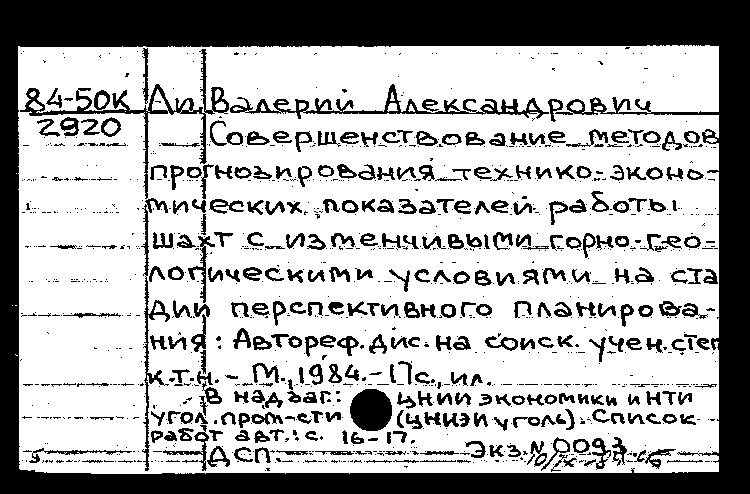 84-50К Ли Валерий Александрович
2920 Совершенствование методов
прогнозирования технико-эконо-
мических показателей работы
шахт с изменчивыми горно-гео-
логическими условиями на ста
дии перспективного планирова-
ния: Автореф. дис. на соиск. учен. степ
к.т.н. - М., 1984. - 17с., ил.
В надзаг.: ЦНИИ экономики и НТИ
угол. пром-сти (ЦНИЭИуголь). Список
работ авт.: с. 16-17.
ДСП. Экз. N 0093